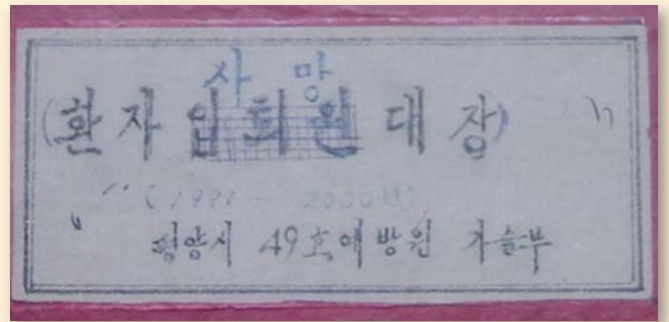 사망
(환자 입퇴원 대장)
(1991 - 2000년)
평양시 49호예방원 기술부